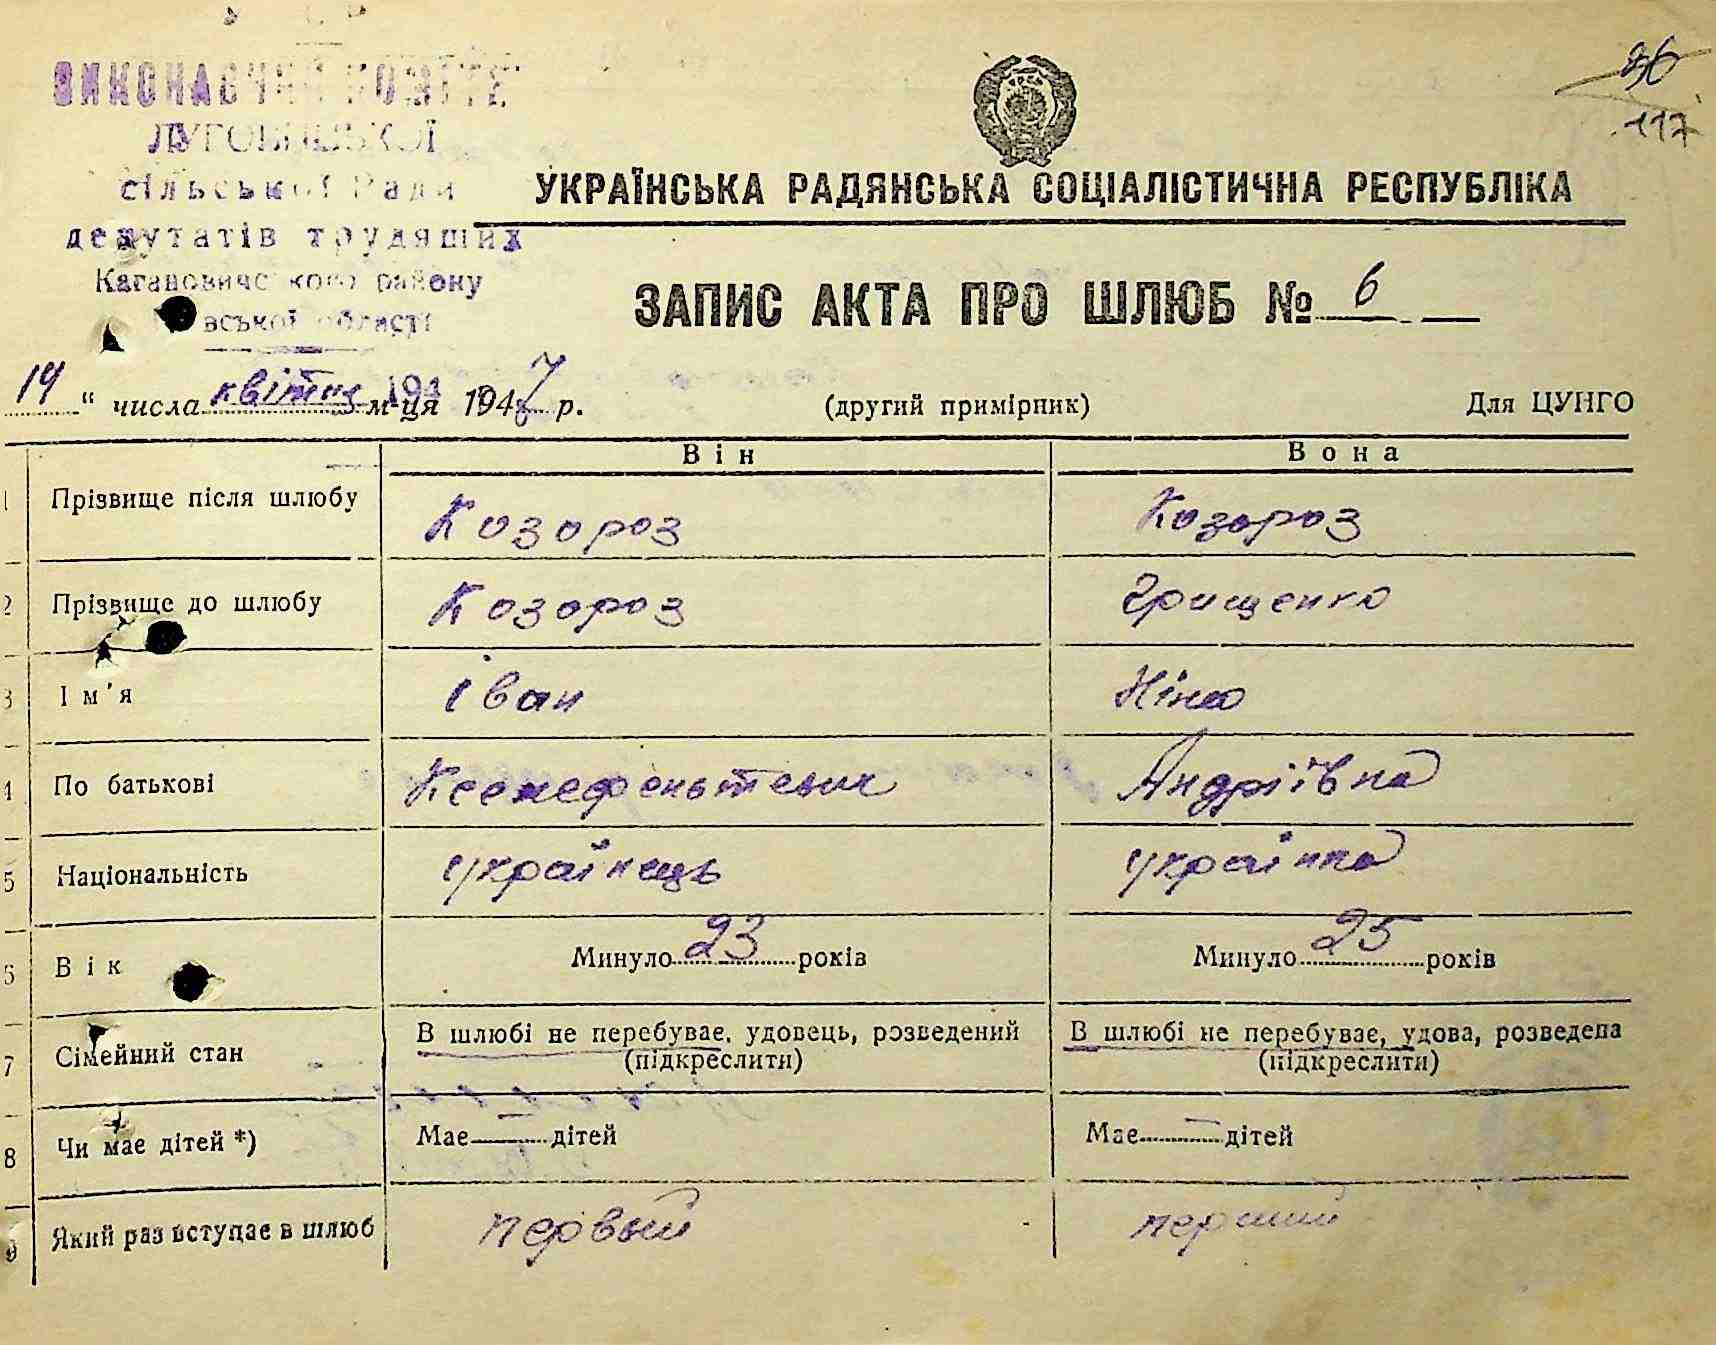 96
117
ВИКОНАВЧИЙ КОМІТЕТ
ЛУГОВИЦЬКОЇ
сільської Ради
депутатів трудящих
Кагановичського району
вської області
194
УКРАЇНСЬКА РАДЯНСЬКА СОЦІАЛІСТИЧНА РЕСПУБЛІКА
ЗАПИС АКТА ПРО ШЛЮБ № 6
14 " числа квітня м-ця 1947 р. (другий примірник) Для ЦУНГО
Він Вона
1 Прізвище після шлюбу Козороз Козороз
2 Прізвище до шлюбу Козороз Грищенко
3 Ім'я Іван Ніна
4 По батькові Андріївна
5 Національність українець українка
6 Вік Минуло 23 років Минуло 25 років
7 Сімейний стан В шлюбі не перебуває, удовець, розведений (підкреслити) В шлюбі не перебуває, удова, розведена (підкреслити)
8 Чи має дітей *) Має — дітей Має — дітей
9 Який раз вступає в шлюб первый перший